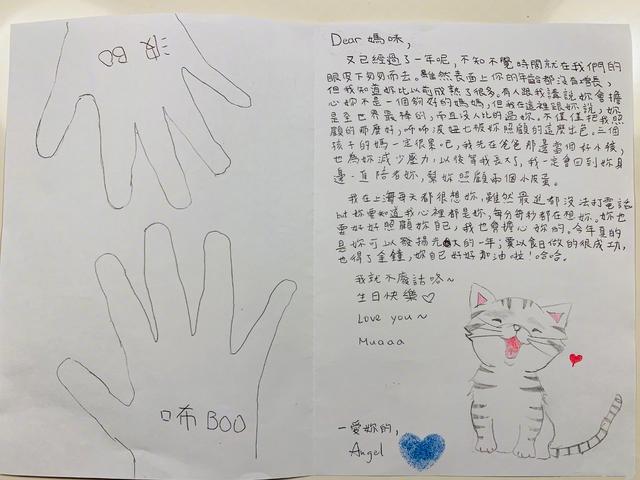 波 BO
咘 BOO
Dear 媽咪,
又已經過了一年呢,不知不覺時間就在我們的
眼皮下匆匆而去。雖然表面上你的年齡都沒有增長,
但我知道妳比以前成熟了很多。有人跟我講說妳會擔
心妳不是一個夠好的媽媽,但我在這裡跟妳說,妳
是全世界最棒的,而且沒人比的過妳。不僅僅把我照
顧的那麼好,咘咘波妞也被妳照顧的這麼出色。三個
孩子的媽一定很累吧,我先在爸爸那邊當個好小孩,
也為妳減少壓力,以後等我長大了,我一定會回到妳身
邊一直陪著妳,幫妳照顧兩個小皮蛋。
我在上海每天都很想妳,雖然最近都沒法打電話
but 妳要知道我心裡都是妳,每分每秒都在想妳。妳也
要好好照顧妳自己,我也會擔心妳的。今年真的
是妳可以發揚光大的一年;窶以食日做的很成功,
也得了金鐘,妳自己好好加油啦!哈哈。
我就不廢話咯~
生日快樂♡
Love you~
Muaaa
一愛妳的,
Angel